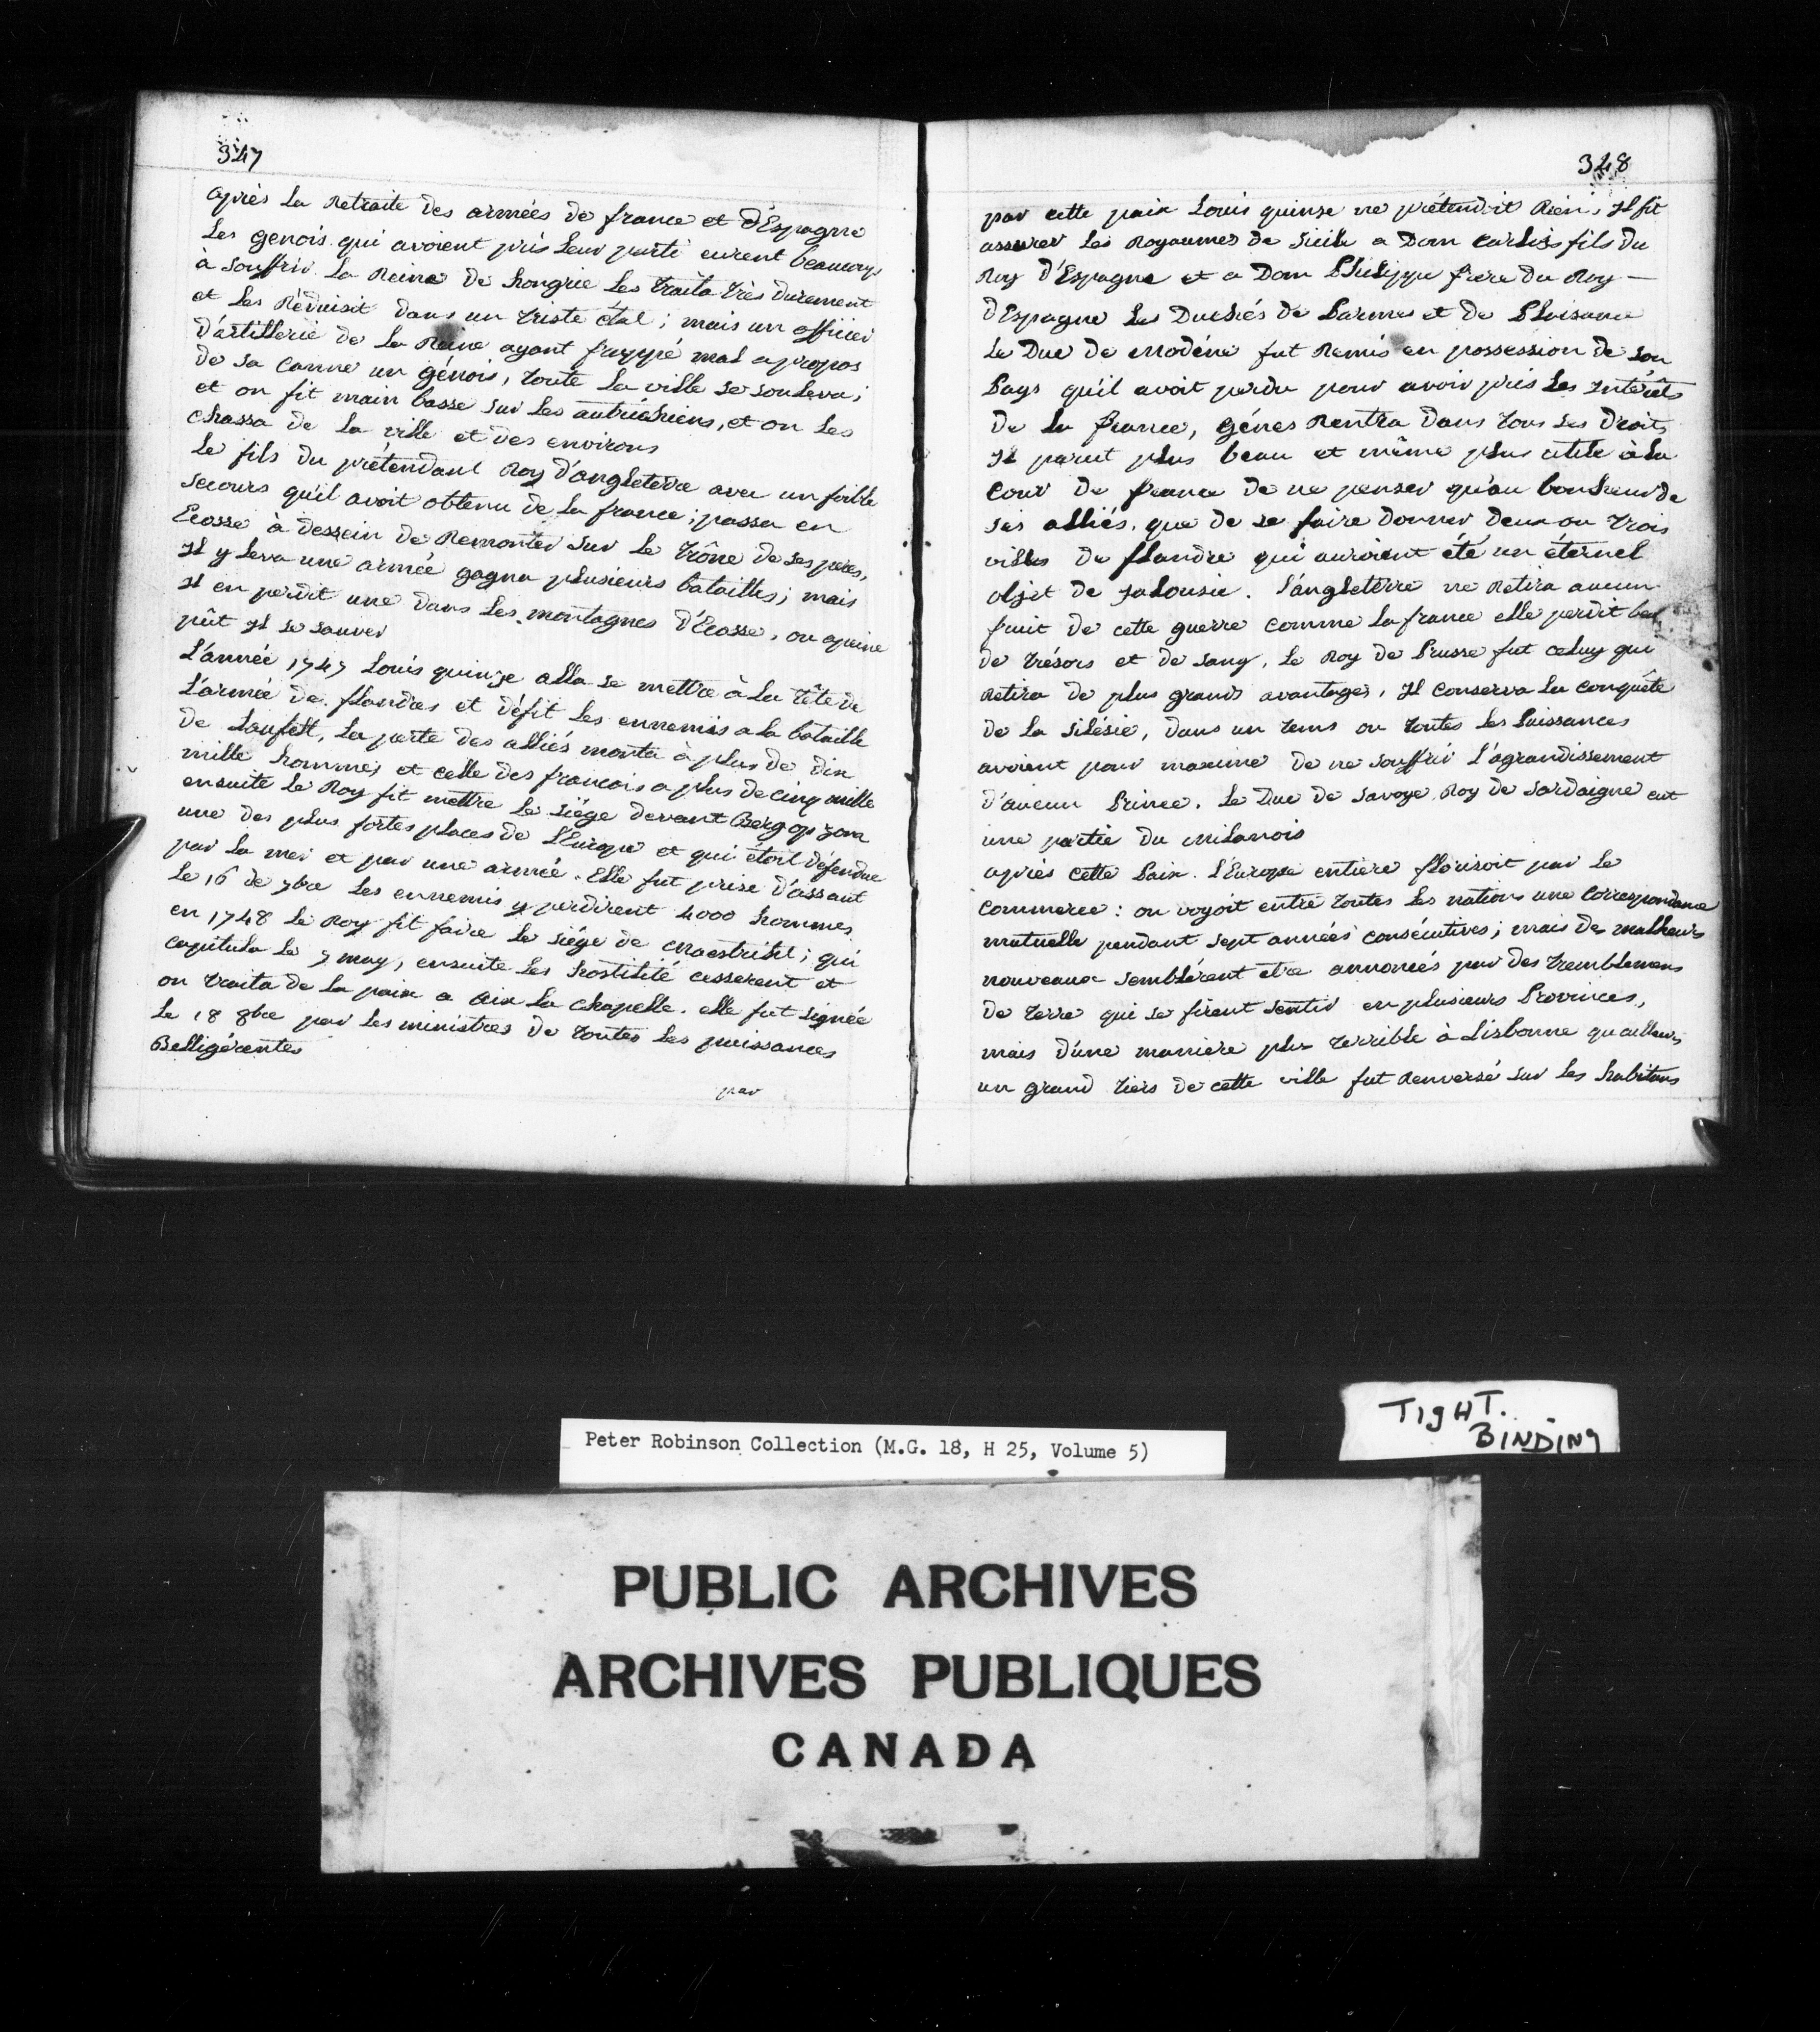 347
après La Retraite des armées de france et d'Espagne
Les genois qui avoient pris Leur parti eurent beaucoup
à souffrir La Reine de hongrie Les traita très durement
et Les Réduisit dans un triste état ; mais un officier
d'artillerie de La Reine ayant frappé mal apropos
de sa canne un génois, toute La ville se souleva ;
et on fit main basse sur Les autrichiens, et on Les
chassa de La ville et des environs
Le fils du prétendant Roy d'angleterre avec un foible
secours qu'il avoit obtenu de La france ; passa en
Ecosse à dessein de Remonter sur Le trône de ses peres,
Il y Leva une armée gagna plusieurs batailles ; mais
Il en perdit une dans Les montagnes d'Ecosse, ou apeine
pût Il se sauver
L'année 1747 Louis quinze alla se mettre à La tête de
L'armée de flandres et défit Les ennemis a La bataille
de Laufelt, La perte des alliés monta à plus de dix
mille hommes et celle des francois a plus de cinq mille
ensuite Le Roy fit mettre Le siége devant Berg op zom
une des plus fortes places de L'Europe et qui étoit défendue
par La mer et par une armée. Elle fut prise d'assaut
Le 16 de 7bre Les ennemis y perdirent 4000 hommes
en 1748 Le Roy fit faire Le siége de Maestricht ; qui
capitula Le 7 may, ensuite Les hostilité cesserent et
on traita de La paix a aix La chapelle. elle fut signée
Le 18 8bre par Les ministres de toutes Les puissances
Belligérentes
par
348
par cette paix Louis quinze ne prétendit Rien, Il fit
assurer Les Royaumes de Sicile a Dom Carlos fils du
Roy d'Espagne et a Dom Philippe frere du Roy —
d'Espagne Les Duchés de Parme et de Plaisance
Le Duc de Modéne fut Remis en possession de son
Pays qu'il avoit perdu pour avoir pris Les Intérêts
de La france, génes Rentra dans tous ses droits
Il parut plus beau et même plus utile à La
Cour de france de ne penser qu'au bonheur de
ses alliés, que de se faire donner deux ou trois
villes de flandre qui auroient été un éternel
objet de jalousie. L'angleterre ne Retira aucun
fruit de cette guerre comme La france elle perdit
de trésors et de sang, Le Roy de Prusse fut celuy qui
Retira de plus grands avantages, Il conserva La conquête
de La Silésie, dans un tems ou toutes Les Puissances
avoient pour maxime de ne souffrir L'agrandissement
d'aucun Prince. Le Duc de Savoye Roy de Sardaigne eut
une partie du Milanois
après cette Paix. L'Europe entiere florissoit par Le
Commerce : on voyoit entre toutes Les nations une Correspondance
mutuelle pendant sept années consécutives ; mais des malheurs
nouveaux semblérent etre annoncés par des tremblemens
de terre qui se firent sentir en plusieurs Provinces,
mais d'une maniere plus terrible à Lisbonne qu'ailleurs
un grand tiers de cette ville fut Renversé sur Les habitans
TIGHT.
BINDING
Peter Robinson Collection (M.G. 18, H 25, Volume 5)
PUBLIC ARCHIVES
ARCHIVES PUBLIQUES
CANADA